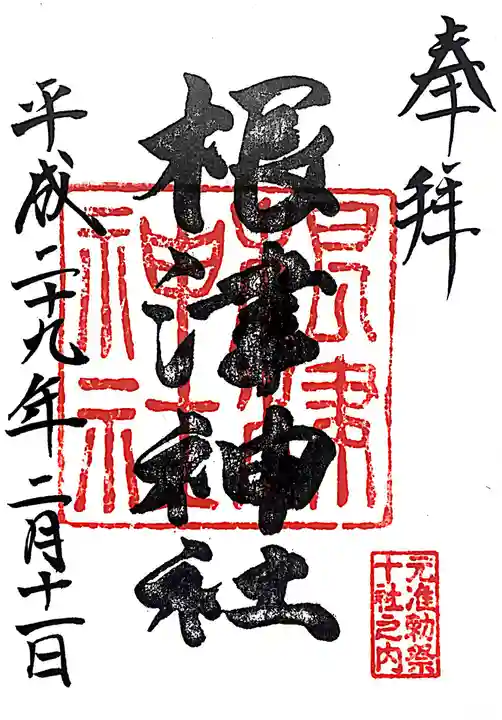 奉拝
根津神社
根津神社
元准勅祭
十社之内
平成二十九年二月十一日